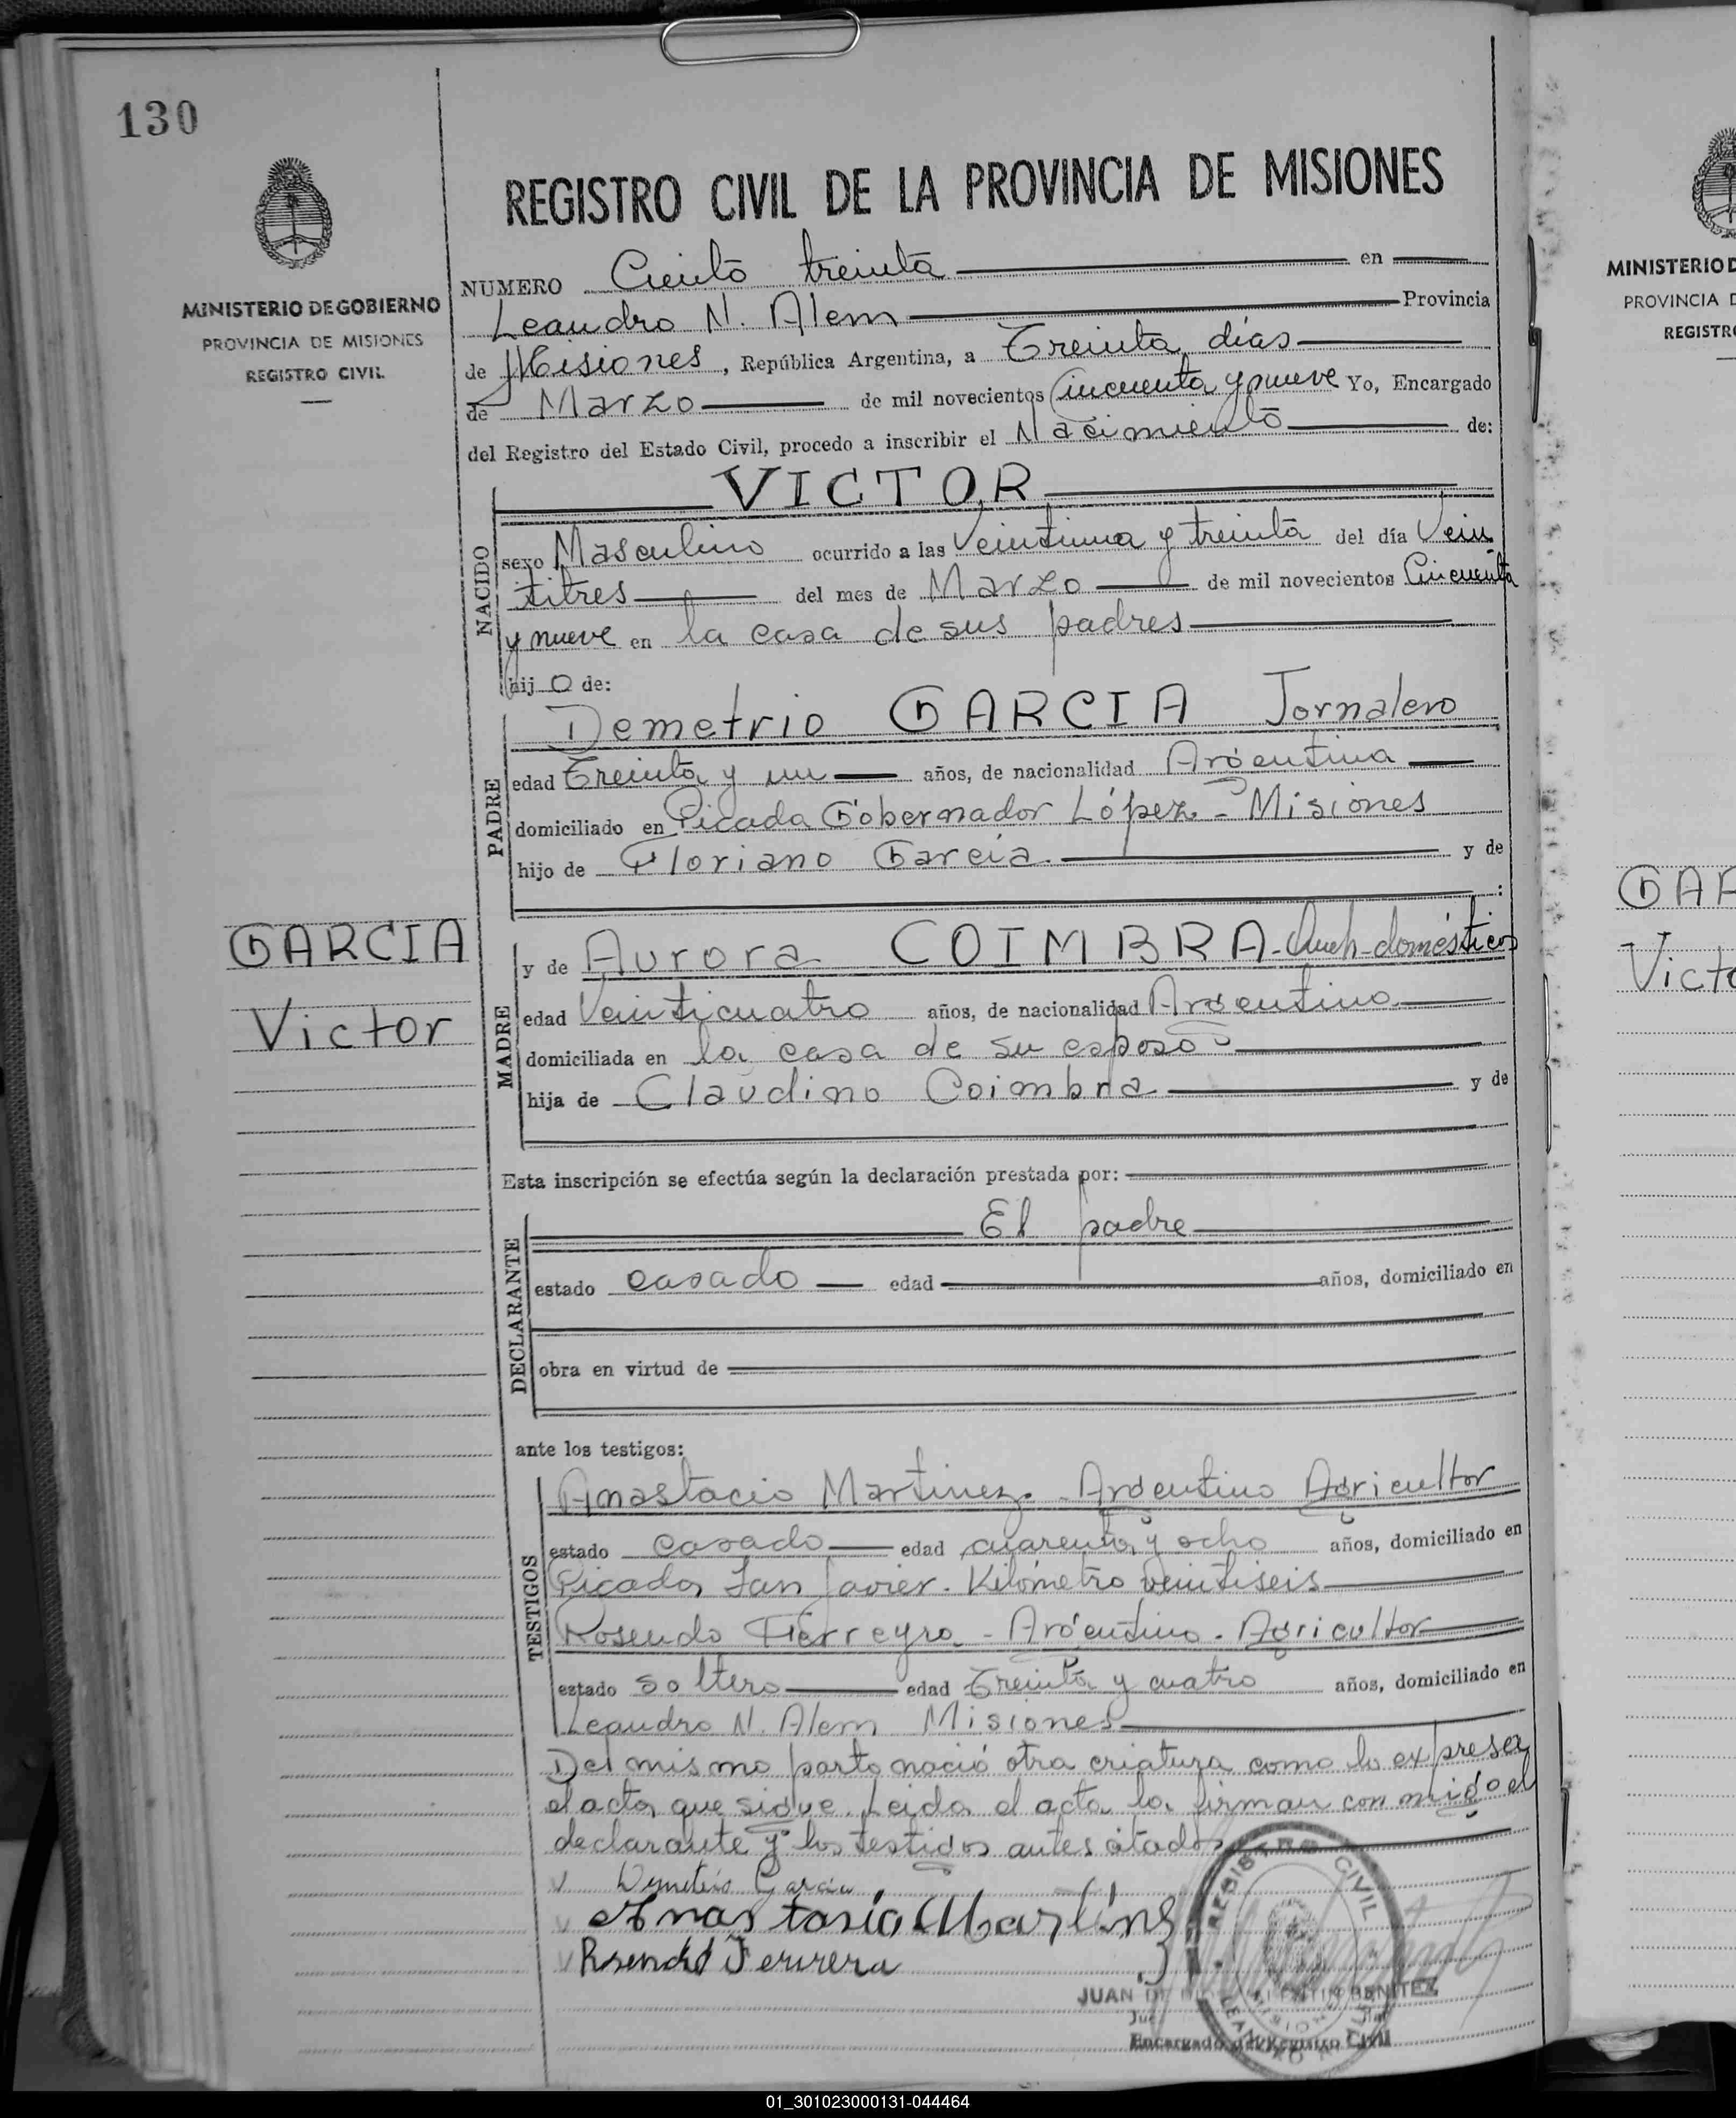 130
MINISTERIO DE GOBIERNO
PROVINCIA DE MISIONES
REGISTRO CIVIL
REGISTRO CIVIL DE LA PROVINCIA DE MISIONES
NUMERO Ciento treinta en
Leandro N. Alem Provincia
de Misiones, República Argentina, a Treinta días
de Marzo de mil novecientos Cincuenta y nueve Yo, Encargado
del Registro del Estado Civil, procedo a inscribir el Nacimiento de:
NACIDO
VICTOR
sexo Masculino ocurrido a las Veintiuna y treinta del día Vein
titres del mes de Marzo de mil novecientos Cincuenta
y nueve en la casa de sus padres
hijo de:
PADRE
Demetrio GARCIA Jornalero
edad Treinta y un años, de nacionalidad Argentina
domiciliado en Picada Gobernador López - Misiones
hijo de Floriano Garcia. y de
:
GARCIA
Victor
MADRE
y de Aurora COIMBRA - Queh-domésticos
edad Veinticuatro años, de nacionalidad Argentina
domiciliada en la casa de su esposo
hija de Claudino Coimbra y de
Esta inscripción se efectúa según la declaración prestada por:
DECLARANTE
El padre
estado casado edad años, domiciliado en
obra en virtud de
ante los testigos:
TESTIGOS
Anastacio Martinez - Argentino Agricultor
estado casado edad cuarenta y ocho años, domiciliado en
Picada San Javier. Kilómetro veintiseis
Rosendo Ferreyra - Argentino - Agricultor
estado soltero edad Treinta y cuatro años, domiciliado en
Leandro N. Alem Misiones
Del mismo parto nació otra criatura como lo expresa
el acta que sigue. Leida el acta la firman con migo el
declarante y los testigos antes citados
Demetrio Garcia
Anastasio Martinez
Rosendo Ferrera
REGISTRO CIVIL
JUAN DE BENITEZ
Encargado del Registro Civil
MINISTERIO D
PROVINCIA D
REGISTR
GAR
Victo
01_301023000131-044464